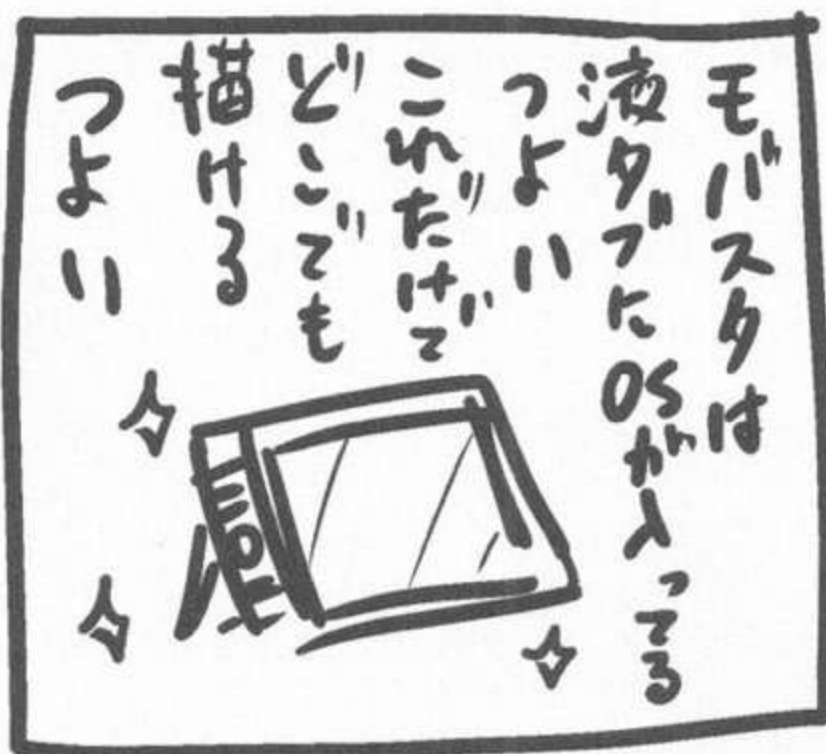 モバスタは
液タブにOSが入ってる
つよい
これだけで
どこでも
描ける
つよい